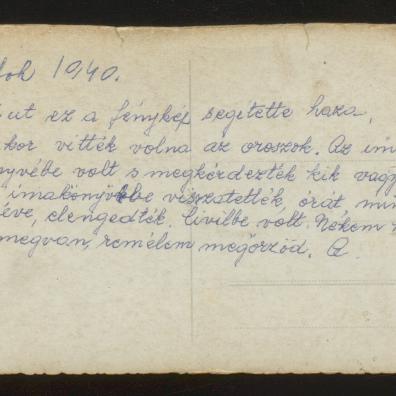 1940.
ut ez a fénykép segitette haza,
kor vitték volna az oroszok. Az im
nyvébe volt s megkérdezték kik vagy
imakönyvbe visszatették, órát mi
éve, elengedték. Civilbe volt. Nékem
megvan, remélem megőrzöd. A.